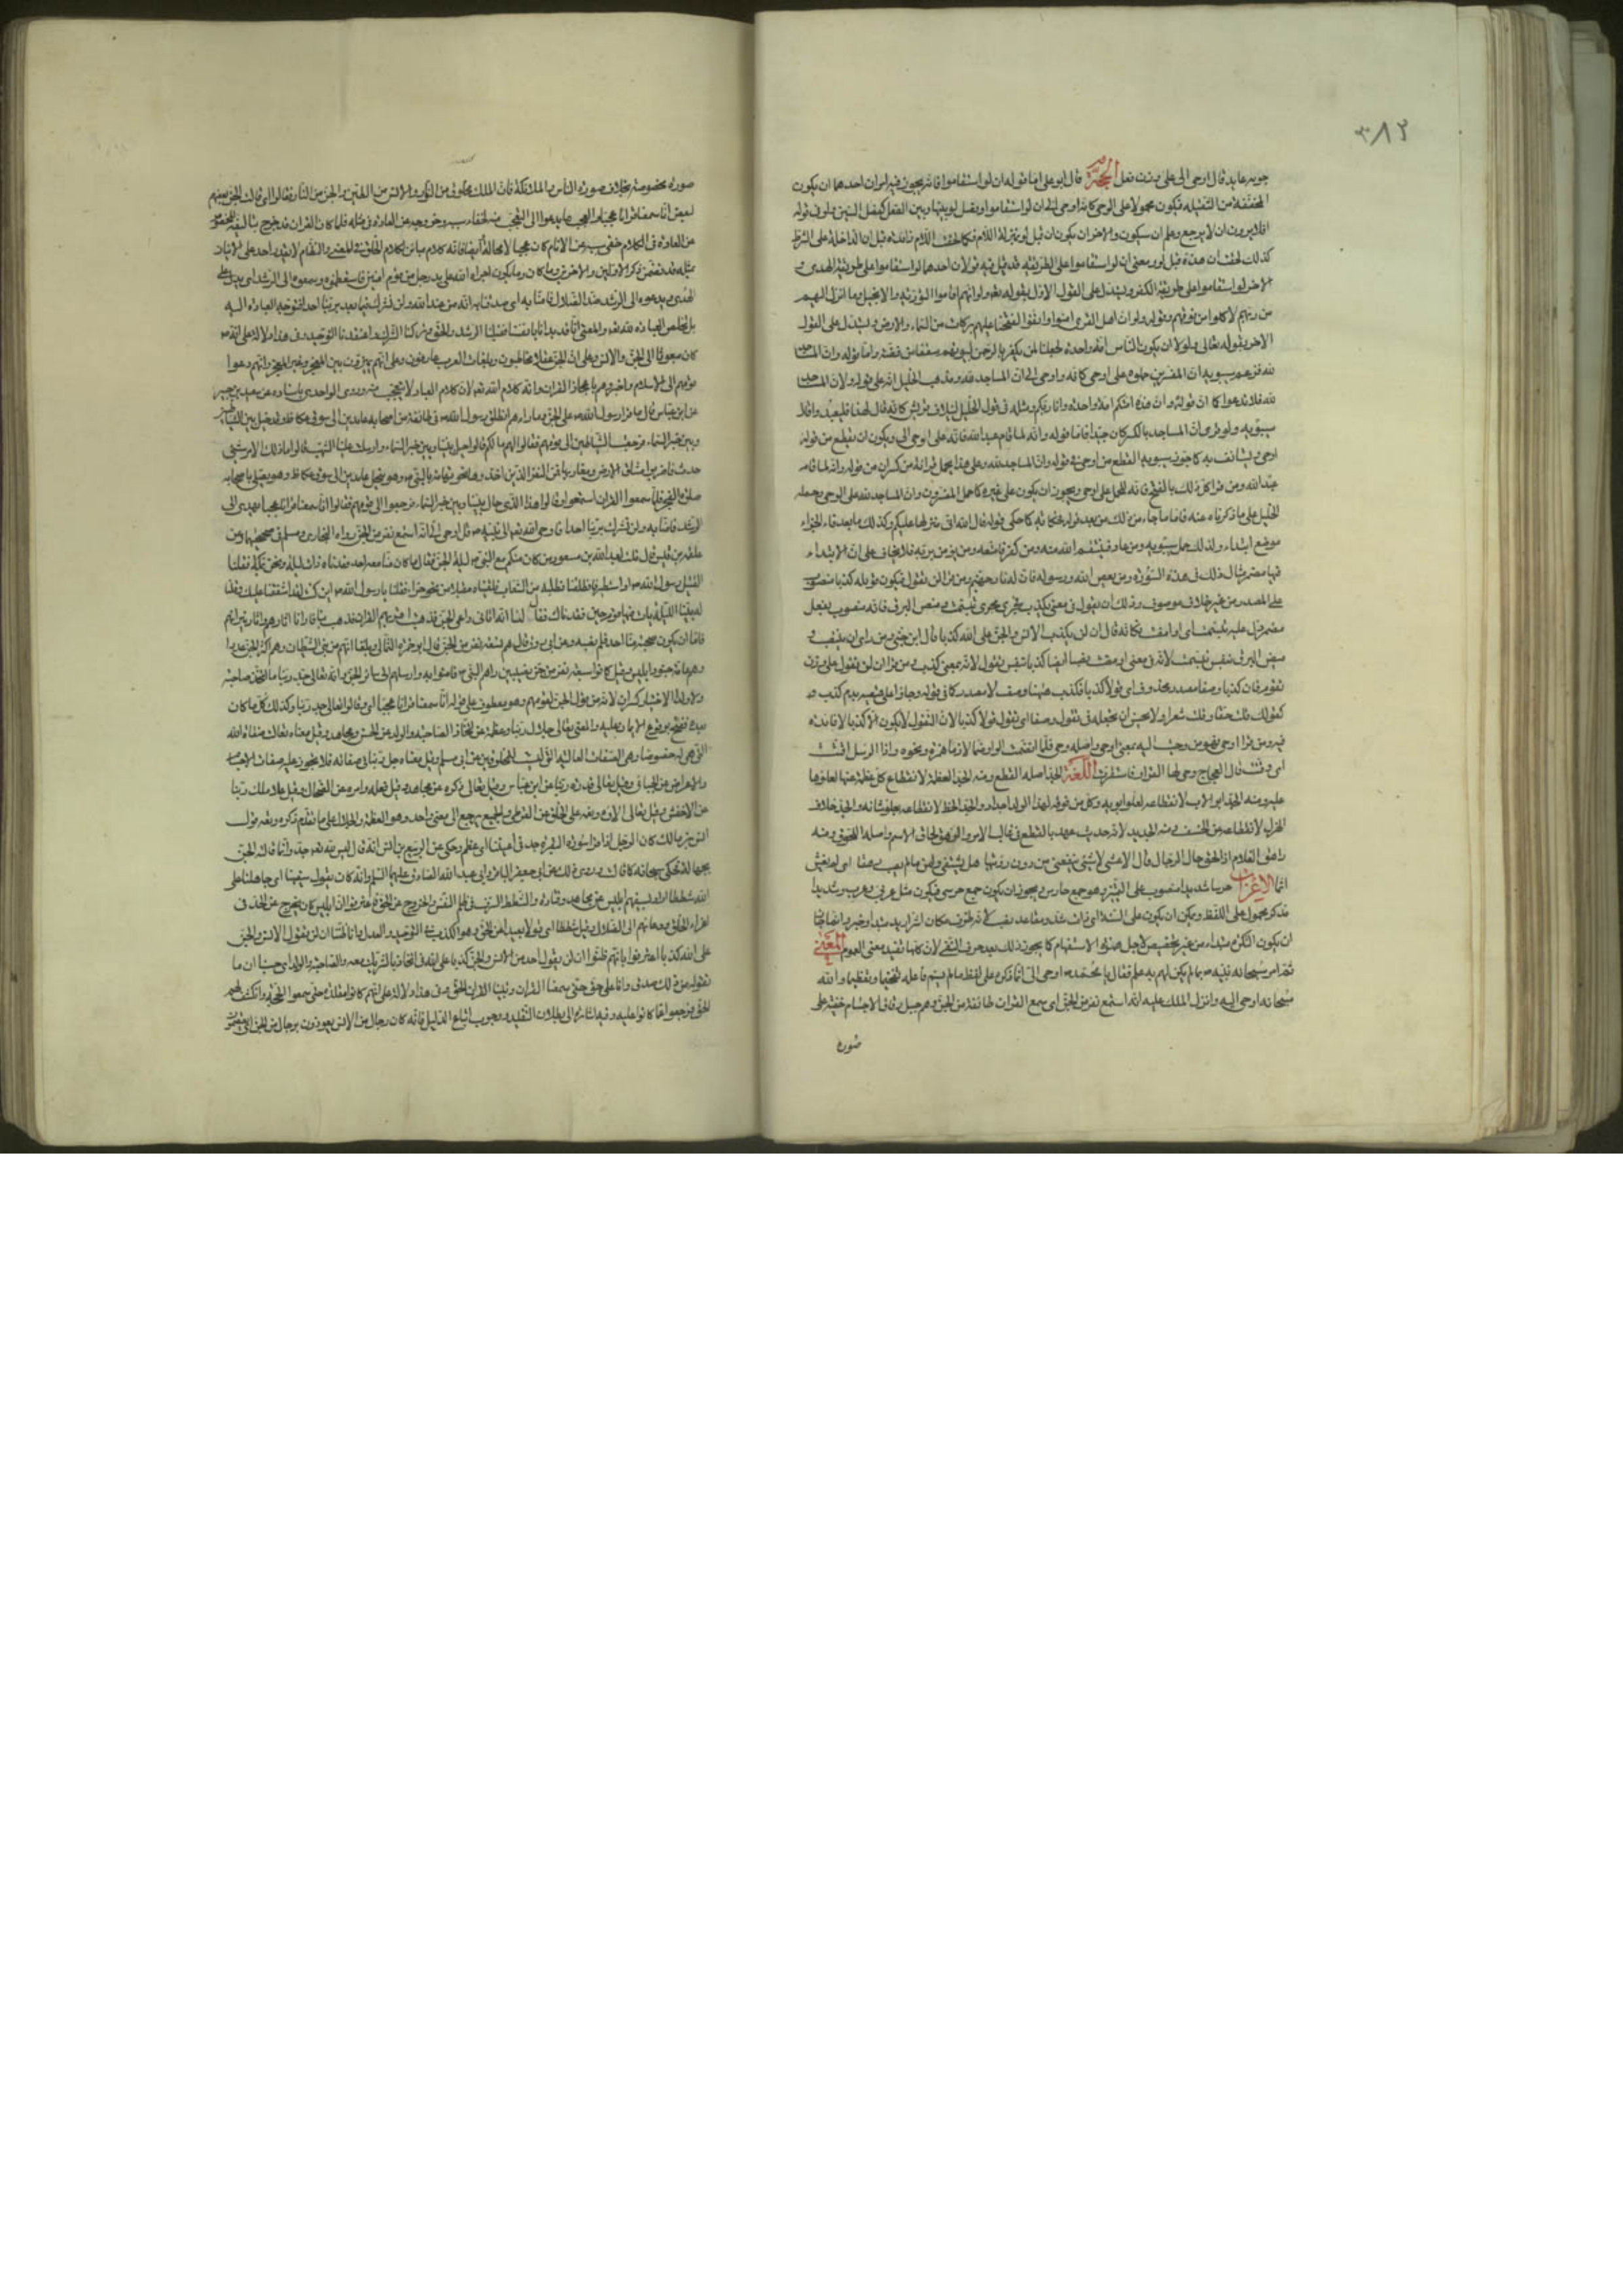 ٣٨٢
جويه عايد قال اوحى الى على وزن فعل الحجة قال ابو على اما قوله ان لو استقاموا فانه يجوز فيه امران احدهما ان يكون
المخففة من الثقيلة فيكون محمولا على الوحى كانه اوحى الى ان لو استقاموا وفصل لو بينها وبين الفعل كفصل السين ولا فى قوله
افلا يرون ان لا يرجع وعلم ان سيكون والاخر ان يكون ان قبل لو بمنزلة اللام فى لئن زائدة قبل ان الداخلة على الشرط
كذلك لحقت ان هذه قبل لو ومعنى ان لو استقاموا على الطريقة قد قيل فيه قولان احدهما لو استقاموا على طريقة الهدى و
الاخر لو استقاموا على طريقة الكفر ويستدل على القول الاول بقوله تعالى ولو انهم اقاموا التورية والانجيل وما انزل اليهم
من ربهم لاكلوا من فوقهم وقوله ولو ان اهل القرى امنوا واتقوا لفتحنا عليهم بركات من السماء والارض ويستدل على القول
الاخر بقوله تعالى ولولا ان يكون الناس امة واحدة لجعلنا لمن يكفر بالرحمن لبيوتهم سقفا من فضة واما قوله وان المساجد
لله فزعم سيبويه ان المفسرين حملوه على اوحى كانه واوحى الى ان المساجد لله ومذهب الخليل انه على قوله ولان المساجد
لله فلا تدعوا كما ان قوله وان هذه امتكم امة واحدة وانا ربكم ومثله فى قول الخليل لايلاف قريش كانه قال لهذا فليعبدوا قال
سيبويه ولو قرئ ان المساجد بالكسر كان جيدا فاما قوله وانه لما قام عبد الله فانه على اوحى الى ويكون ان يقطع من قوله
اوحى ويستانف به كما جوز سيبويه القطع من اوحى فى قوله وان المساجد لله وعلى هذا يحمل قراءة من كسر ان من قوله وانه لما قام
عبد الله ومن قرا كل ذلك بالفتح فانه للحمل على اوحى ويجوز ان يكون على غيره كما حمل المفسرون وان المساجد لله على الوحى وحمله
الخليل على ما ذكرناه عنه فاما ما جاء من ذلك من بعد قوله فكانه كما حكى قوله قال الله انى منزلها عليكم وكذلك ما بعد فاء الجزاء
موضع ابتداء ولذلك حمل سيبويه ومن عاد فينتقم الله منه ومن كفر فامتعه ومن يؤمن بربه فلا يخاف على ان الابتداء
فيها مضمر مثال ذلك فى هذه السورة ومن يعص الله ورسوله فان له نار جهنم ومن قرا لن تقول فيكون قوله كذبا منصوب
على المصدر من غير حذف موصوف وذلك ان تقول فى معنى تكذب
مضمر دل عليه
تقول فان كذبا وصفا مصدر محذوف اى قولا كذبا
كقولك قلت حقا وقلت شعرا ولا يحسن ان تجعله فى تقول وصفا اى تقول قولا كذبا لان التقول لا يكون الا كذبا لا فائدة
فيه ومن قرا احى فهو من وحيت اليه بمعنى اوحى واصله وحى فلما انضمت الواو ضما لازما همزت ونحوه واذا الرسل اقتت
اى وقتت قال العجاج وحى لها القرار فاستقرت اللغة الجد اصله القطع ومنه الجد العظمة لانقطاع كل عظمة عنها لعلوها
عليه ومنه الجد ابو الاب لانقطاعه لعلو ابوته وكل من فوقه لهذا الولد اجداد والجد الحظ لانقطاعه بعلو شانه والجد خلاف
الهزل لانقطاعه من السخف ومنه الجديد لانه حديث عهد بالقطع فى غالب الامر والرهق لحاق الاثم واصله اللحوق ومنه
راهق الغلام اذا لحق حال الرجال قال الاعشى لا شئ ينفعنى من دون رؤيتها هل يشتفى وامق ما لم يصب رهقا اى لم يغش
اثما الاعراب حرسا شديدا منصوب على التمييز وهو جمع حارس ويجوز ان يكون جمع حرسى فيكون مثل عربى وعرب وشديدا
مذكر محمول على اللفظ
ان يكون النكرة مبتداء من غير تخصيص لاجل همزة الاستفهام كما يجوز ذلك بعد حرف النفى لان كلاهما يفيد معنى العموم المعنى
ثم امر سبحانه نبيه ص بما لم يكن لهم به علم فقال يا محمد ص اوحى الى انما ذكره على لفظ ما لم يسم فاعله تفخيما وتعظيما والله
سبحانه اوحى اليه وانزل الملك عليه انه استمع نفر من الجن اى سمع القران طائفة من الجن وهم جيل رقاق الاجسام خفية على
صورة
صورة مخصوصة بخلاف صورة الناس والملائكة فان الملك مخلوق من النور والانس من الطين والجن من النار فقالوا اى قالت الجن بعضهم
لبعض انا سمعنا قرانا عجبا والعجب ما يدعوا الى التعجب منه لخفاء سببه وخروجه عن العادة فى مثله فلما كان القران قد خرج بتاليفه المخصوص
عن العادة فى الكلام وخفى سببه عن الانام كان عجبا لا محالة ايضا فانه كلام مباين لكلام الخلق فى المعنى والنظام لا يقدر احد على الاتيان
بمثله وقد تضمن ذكر الاولين والاخرين وما كان وما يكون اجراه الله على يد رجل من قوم اميين فاستعظموه وسموه عجبا يهدى الى الرشد اى يدل على
الهدى ويدعوه الى الرشد ضد الضلال فامنا به اى صدقنا بانه من عند الله ولن نشرك فيما بعد بربنا احدا فنوجه العبادة اليه
بل نخلص العبادة لله تعالى والمعنى انا قد بدانا بانفسنا فقبلنا الرشد والحق وتركنا الشرك واعتقدنا التوحيد وفى هذا دلالة على انه ص
كان مبعوثا الى الجن والانس وعلى ان الجن عقلاء مخاطبون وبلغات العرب عارفون وعلى انهم يميزون بين المعجز وغير المعجز وانهم دعوا
قومهم الى الاسلام واخبروهم باعجاز القران وانه كلام الله تعالى لان كلام العباد لا يتعجب منه وروى الواحدى باسناده عن سعيد بن جبير
عن ابن عباس قال ما قرا رسول الله ص على الجن وما راهم انطلق رسول الله ص فى طائفة من اصحابه عامدين الى سوق عكاظ وقد حيل بين الشياطين
وبين خبر السماء فرجعت الشياطين الى قومهم فقالوا ما لكم قالوا حيل بيننا وبين خبر السماء وارسلت علينا الشهب قالوا ما ذلك الا من شئ
حدث فاضربوا مشارق الارض ومغاربها فمر النفر الذين اخذوا نحو تهامة بالنبى ص وهو بنخل عامدين الى سوق عكاظ وهو يصلى باصحابه
صلوة الفجر فلما سمعوا القران استمعوا له وقالوا هذا الذى حال بيننا وبين خبر السماء فرجعوا الى قومهم فقالوا انا سمعنا قرانا عجبا يهدى الى
الرشد فامنا به ولن نشرك بربنا احدا فاوحى الله تعالى الى نبيه ص قل اوحى الى انه استمع نفر من الجن رواه البخارى ومسلم فى صحيحيهما وعن
علقمة بن قيس قال قلت لعبد الله بن مسعود من كان منكم مع النبى ص ليلة الجن فقال ما كان منا معه احد فقدناه ذات ليلة ونحن بمكة فقلنا
اغتيل رسول الله ص او استطير فانطلقنا نطلبه من الشعاب فلقيناه مقبلا من نحو حراء فقلنا يا رسول الله ص اين كنت لقد اشفقنا عليك وقلنا
له بتنا الليلة بشر ليلة بات بها قوم حين فقدناك فقال لنا انه اتانى داعى الجن فذهبت اقرئهم القران فذهب بنا فارانا اثارهم واثار نيرانهم
فاما ان يكون صحبه منا احد فلم يصحبه وعن ابى روق قال هم تسعة نفر من الجن قال ابو حمزة الثمالى وبلغنا انهم من بنى الشيصبان وهم اكثر الجن عددا
وهم عامة جنود ابليس وقيل كانوا سبعة نفر من جن نصيبين راهم النبى ص فامنوا به وارسلهم الى سائر الجن وانه تعالى جد ربنا ما اتخذ صاحبة
ولا ولدا الاختيار كسر ان لانه من قول الجن لقومهم وهو معطوف على قوله انا سمعنا قرانا عجبا اى وقالوا تعالى جد ربنا وكذلك كلما كان
بعده
التى هى له خصوصا وهى الصفات العالية التى ليست للمخلوقين عن ابى مسلم وقيل معناه جل ربنا فى صفاته فلا يجوز عليه صفات الاجسام
والاعراض عن الجبائى وقيل تعالى قدرة ربنا عن ابن عباس وقيل تعالى ذكره عن مجاهد وقيل فعله وامره عن الضحاك وقيل علا ملك ربنا
عن الاخفش وقيل تعالى الاؤه ونعمه على الخلق عن القرظى والجميع يرجع الى معنى واحد وهو العظمة والجلال على ما تقدم ذكره ومنه قول
انس بن مالك كان الرجل اذا قرا سورة البقرة جد فى اعيننا اى عظم وحكى عن الربيع بن انس انه قال ليس لله تعالى جد وانما قالته الجن
بجهالة فحكى سبحانه كما قالت وروى ذلك عن ابى جعفر الباقر وابى عبد الله الصادق عليهما السلم وانه كان يقول سفيهنا اى جاهلنا على
الله شططا ارادوا بسفيههم ابليس عن مجاهد وقتادة والشطط السرف فى ظلم النفس والخروج عن الحق فاعترفوا بان ابليس كان يخرج عن الحد فى
اغواء الخلق ودعائهم الى الضلال وقيل شططا اى قولا بعيدا من الحق وهو الكذب فى التوحيد والعدل وانا ظننا ان لن تقول الانس والجن
على الله كذبا اعترفوا بانهم ظنوا ان لن يقول احد من الانس والجن كذبا على الله فى اتخاذ الشريك معه والصاحبة والولد اى حسبنا ان ما
يقولونه من ذلك صدق وانا على حق حتى سمعنا القران وتبينا الحق به وفى هذا دلالة على انهم كانوا مقلدة حتى سمعوا الحجة وانكشف لهم
الحق فرجعوا عما كانوا عليه وفيه اشارة الى بطلان التقليد ووجوب اتباع الدليل وانه كان رجال من الانس يعوذون برجال من الجن اى يعتصمون